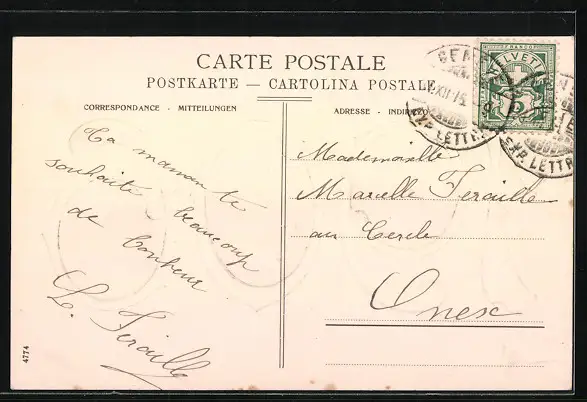 CARTE POSTALE
POSTKARTE — CARTOLINA POSTALE
CORRESPONDANCE - MITTEILUNGEN
ADRESSE - INDIRIZZO
FRANCO
HELVETIA
GENÈVE
EXP. LETTR.
EXP. LETTR.
Ta maman te
souhaite beaucoup
de bonheur
L. Feraille
Mademoiselle
Marelle Feraille
au Cercle
Onex
4774